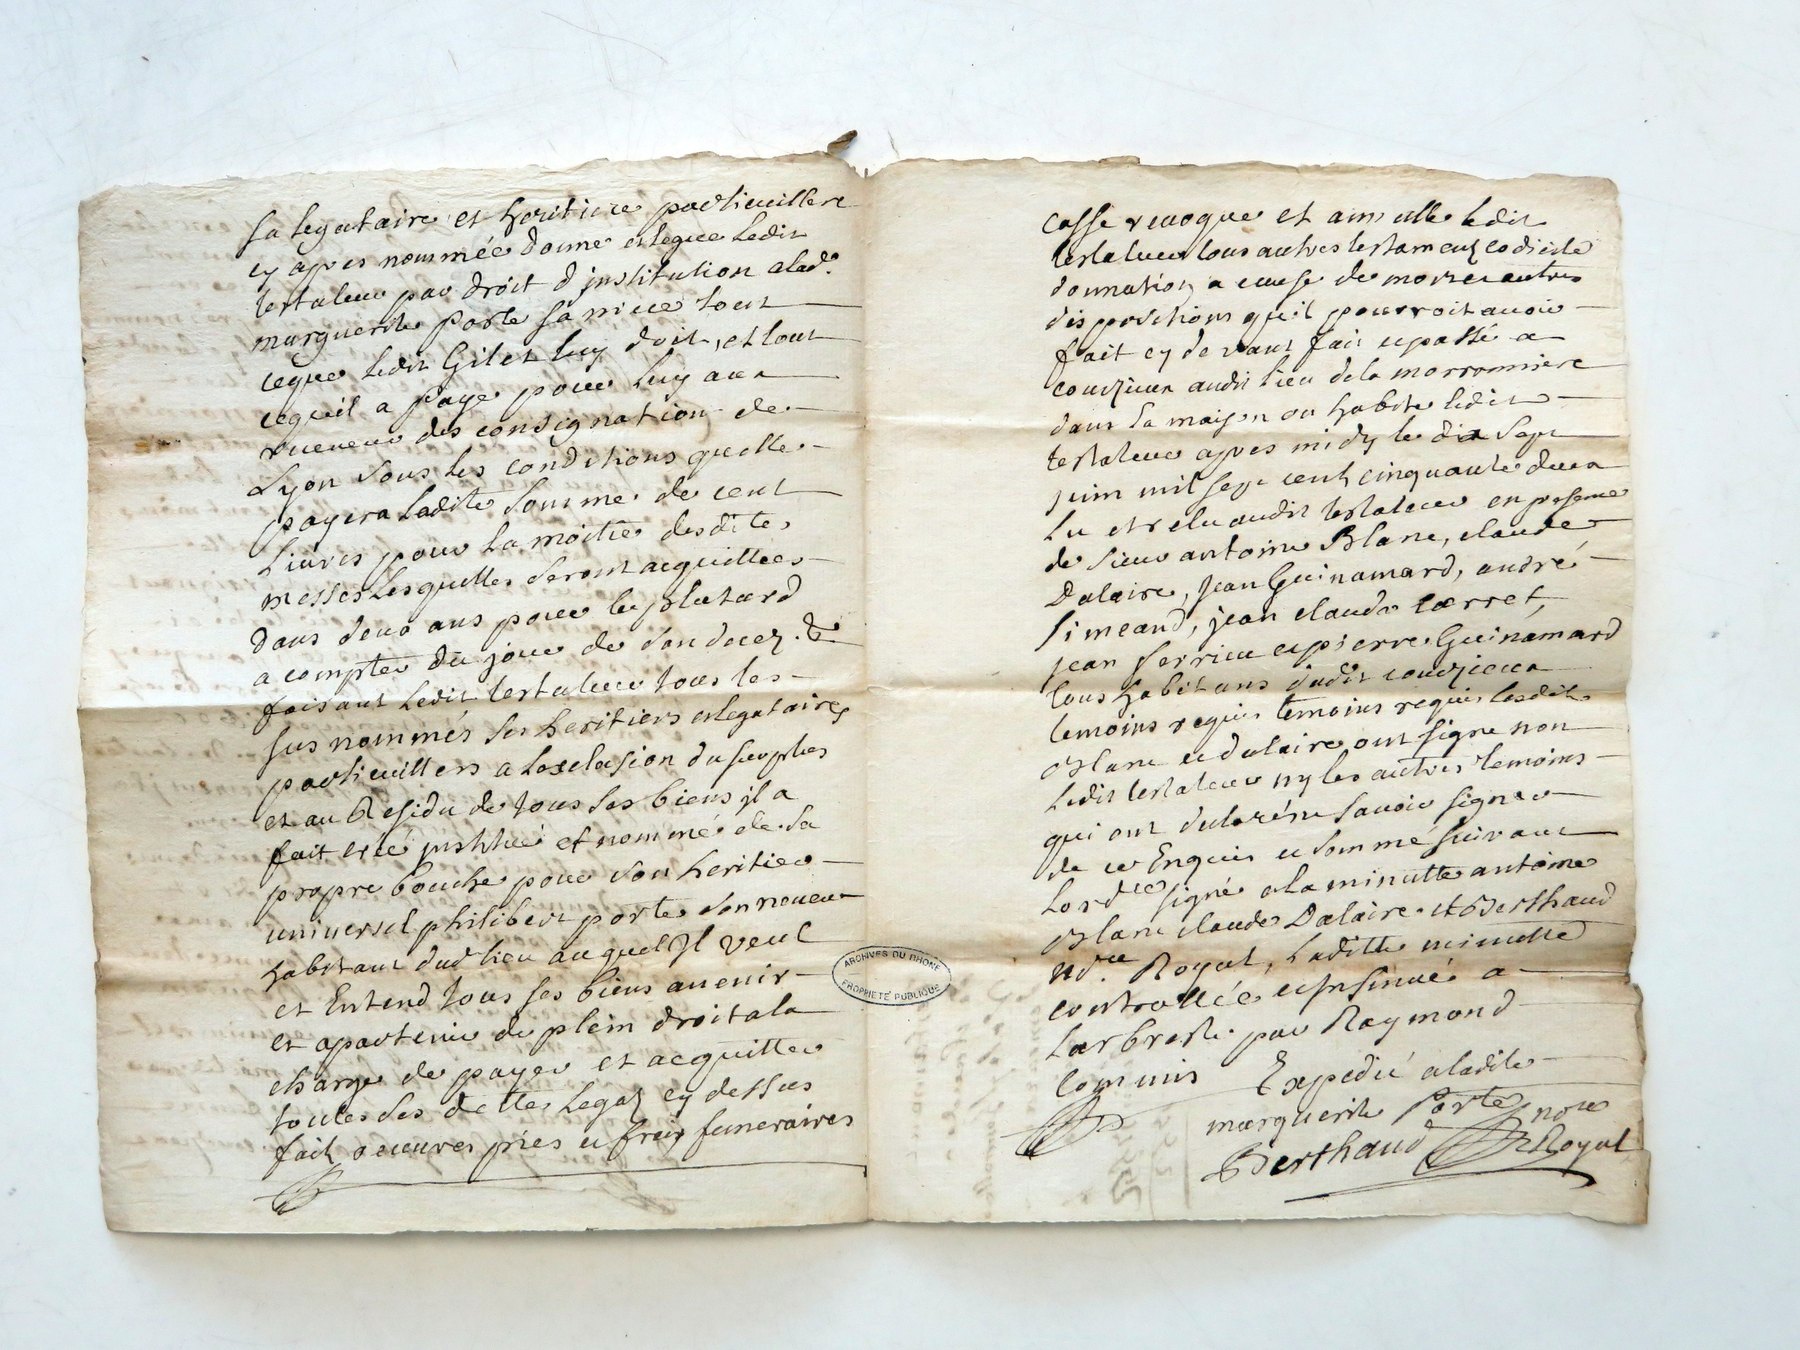 sa legataire et heritiere particuillere
cy apres nommée donne et legue ledit
testateur par droit d'institution a lad.
marguerite Porte sa niece tout
ceque ledit Gilet luy doit, et tout
cequil a paye pour luy aux
receveur des consignation de
Lyon sous les conditions quelle
payera ladite somme de cent
Livres pour la moitié desdites
messes lesquelles seront acquittees
dans deux ans pour le plutard
a compter du jour de son decez. &
faisant ledit testateur tous les
sus nommés ses heritiers et legataires
particuilliers a lexclusion du surplus
et au Residu de tous ses biens jl a
fait créé jnstitué et nommé de sa
propre bouche pour son heritier
universel philibert porte son neveux
habitant dud lieu auquel Jl veut
et Entend tous ses biens avenir
et apartenir de plein droit a la
charge de payer et acquitter
toutes ses dettes Legaz cy dessus
fait oeuvres pies et frais funeraires
casse revoque et annulle ledit
testateur tous autres testamens codicile
donnation a cause de mort et autres
dispositions quil pourroit avoir
fait cy devant fait et passé a
courzieux audit lieu de la morronniere
dans la maison ou habite ledit
testateur apres midy le dix sept
juin mil sept cent cinquante deux
lu et relu audit testateur en presence
de sieur antoine Blanc, claude
Dalaire, Jean Guinamard, andré
simeand, jean claude carret,
jean ferrieu et pierre Guinamard
tous habitans dudit courzieux
temoins requis temoins requis lesdits
Blanc et dalaire ont signe non
ledit testateur ny les autres temoins
qui ont declaré ne savoir signer
de ce Enquis et sommé suivant
Lord.ce signé a la minutte antoine
Blanc claude Dalaire et Berthaud
Nd.re Royal, Laditte minutte
controllée et jnsinué a
Larbresle par Raymond
Commis
Expedié a ladite
marguerite Porte
Berthaud nore Royal
ARCHIVES DU RHONE
PROPRIETÉ PUBLIQUE